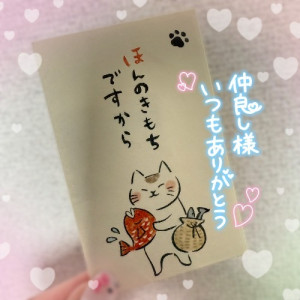 ほんのきもち
ですから
仲良し様
いつもありがとう